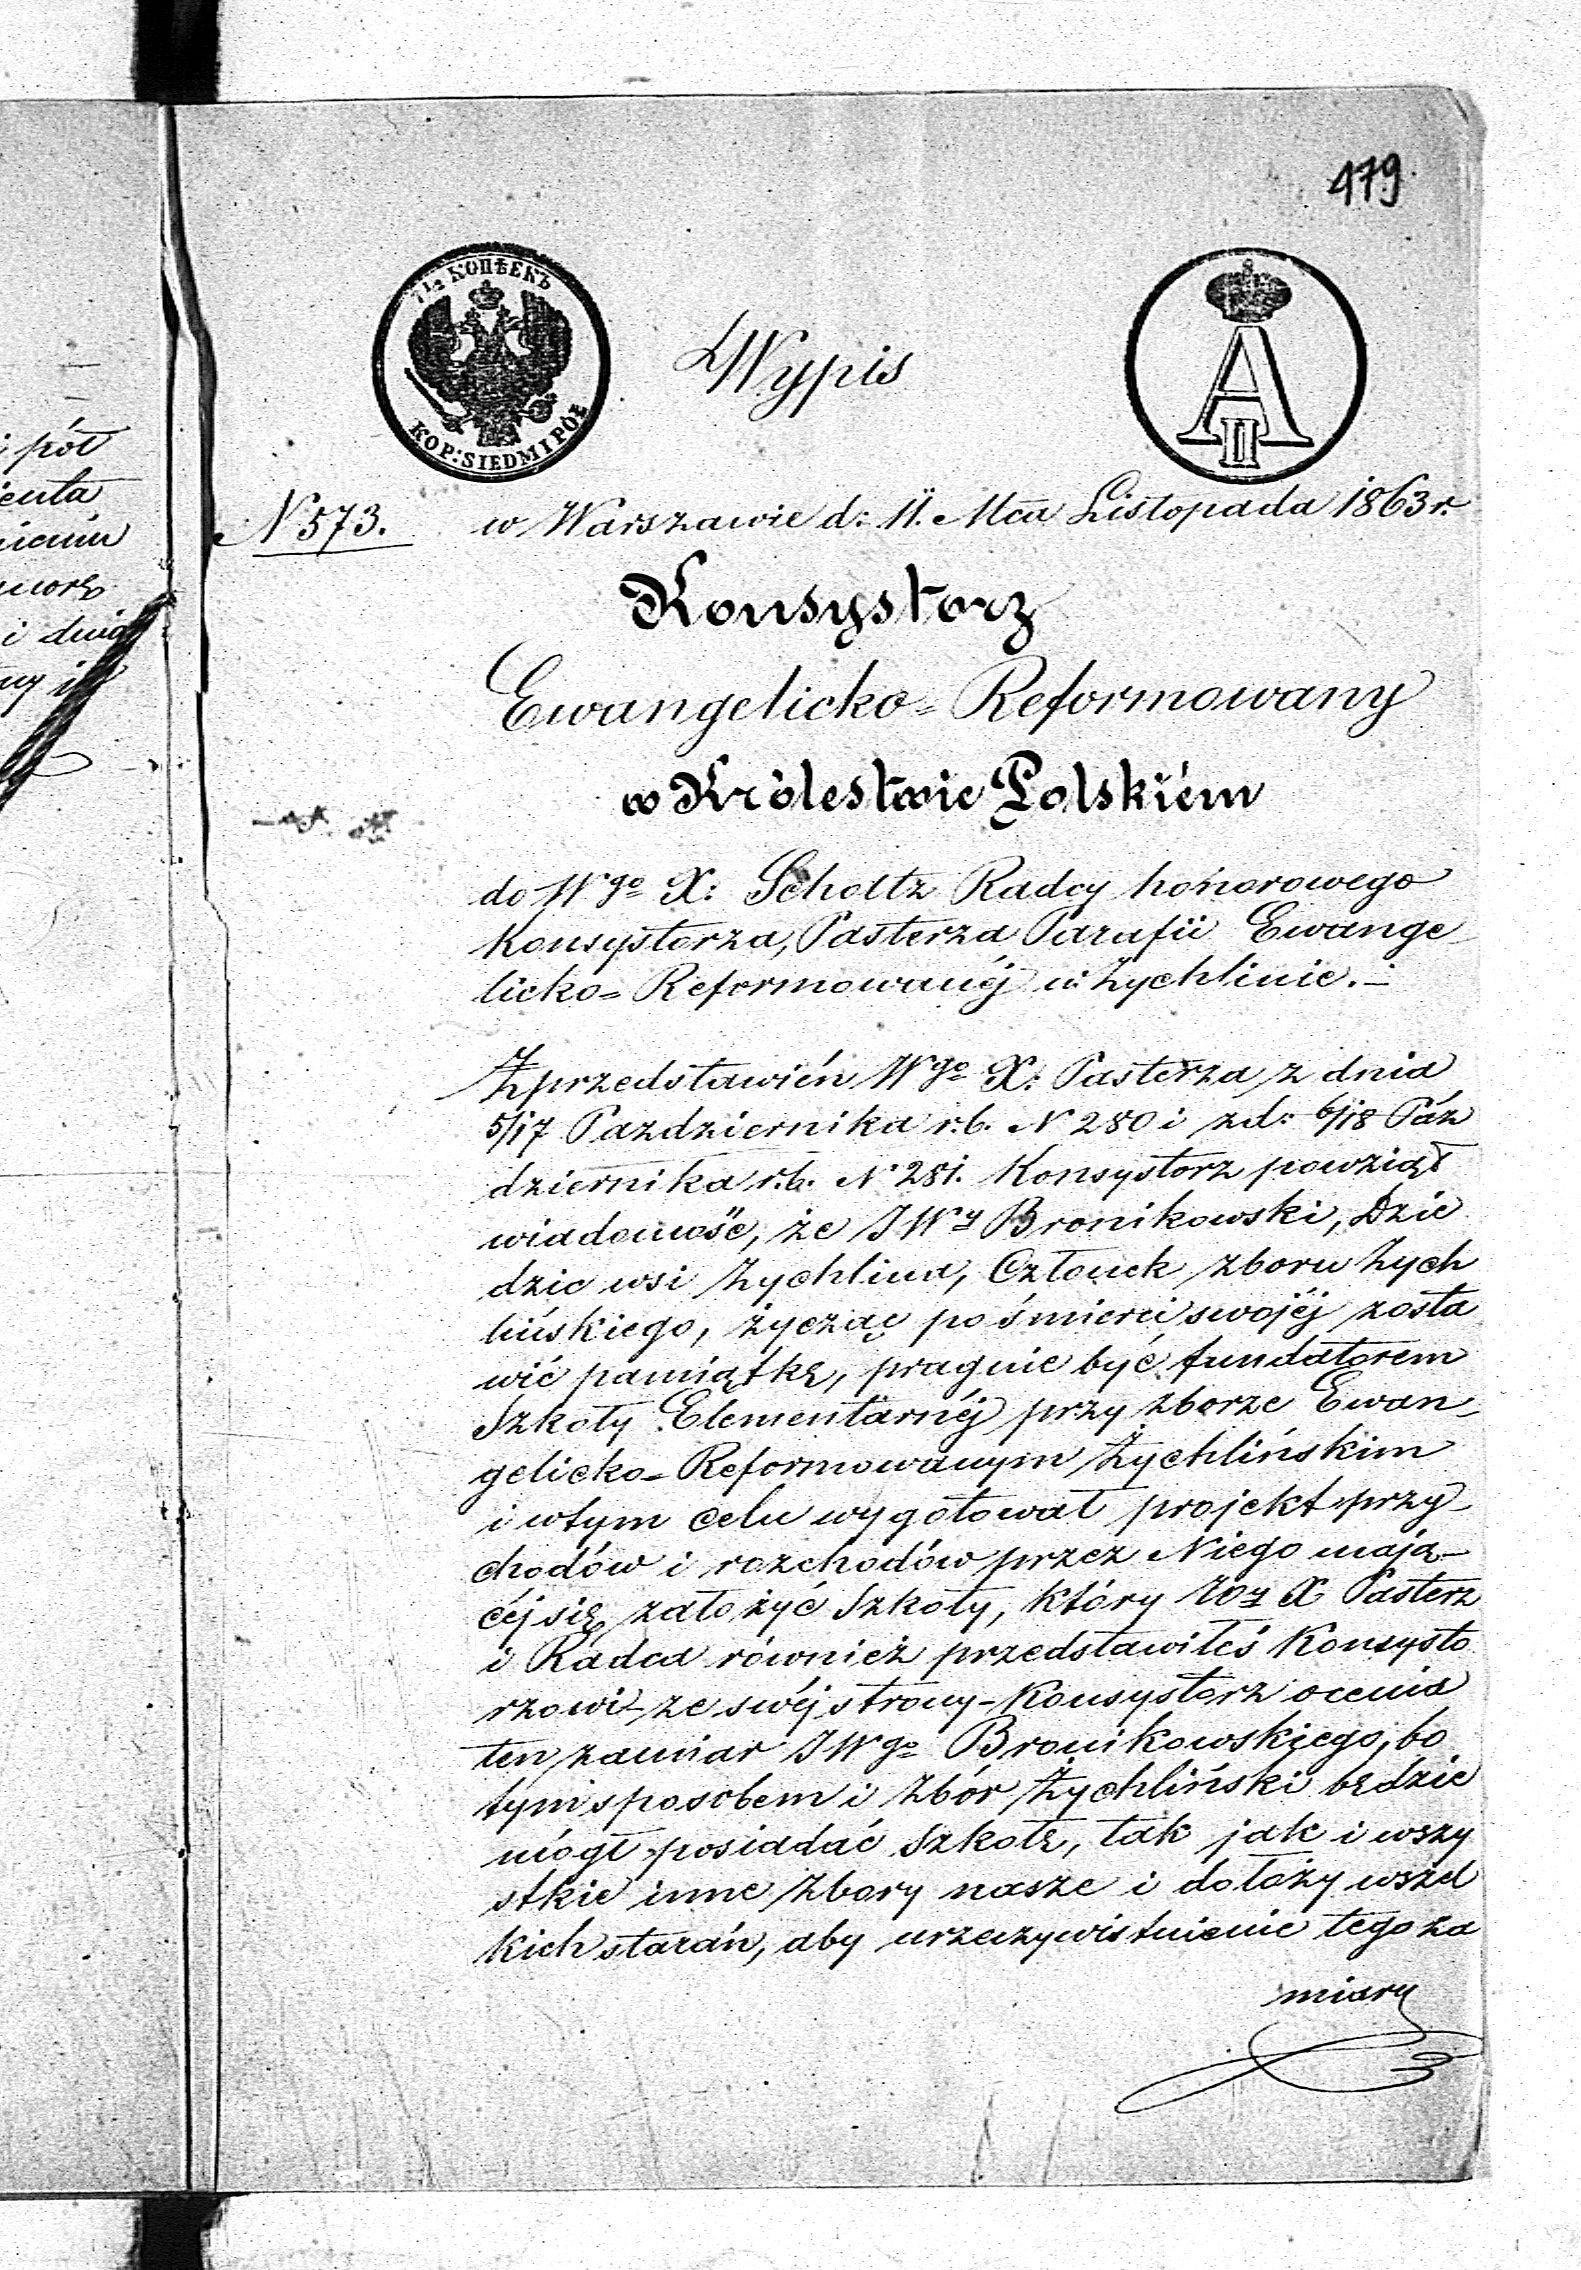 479
7 1/2 КОПѢЕКЪ
KOP: SIEDM I PÓŁ
A II
Wypis
N 573. w Warszawie d: 11. Mca Listopada 1863 r.
Konsystorz
Ewangelicko=Reformowany
w Królestwie Polskiém
do Wgo X: Scholtz Radcy honorowego
Konsystorza, Pasterza Parafii Ewange
licko=Reformowanéj w Żychlinie.-
Z przedstawień Wgo X: Pasterza z dnia
5/17 Pazdziernika r.b. N 280 i z d: 6/18 Paź
dziernika r.b. N 281. Konsystorz powziął
wiadomość, że JWy Bronikowski, Dzie
dzic wsi Żychlina, Członek zboru Żych
lińskiego, życząc po śmierci swojéj zosta
wić pamiątkę, pragnie być fundatorem
Szkoły Elementarnéj przy zborze Ewan-
gelicko-Reformowanym Żychlińskim
i w tym celu wygotował projekt przy-
chodów i rozchodów przez Niego mają-
céj się założyć Szkoły, który Wy X Pasterz
i Radca również przedstawiłeś Konsysto
rzowi ze swéj strony - Konsystorz ocenia
ten zamiar JWgo Bronikowskiego, bo
tym sposobem i Zbór Żychliński będzie
mógł posiadać Szkołę, tak jak i wszy
stkie inne Zbory nasze i dołoży wszel
kich starań, aby urzeczywistnienie tego za
miaru
i pół
enta
i dwa